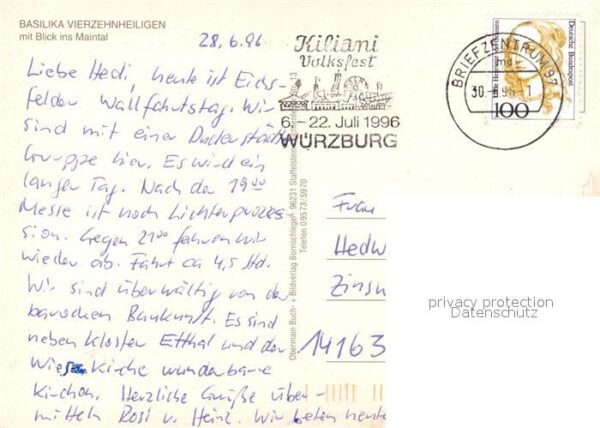 BASILIKA VIERZEHNHEILIGEN
mit Blick ins Maintal
28.6.96
Liebe Hedi, heute ist Eichs-
felder Wallfahrtstag. Wir
sind mit einer Duderstädter
Gruppe hier. Es wird ein
langer Tag. Nach der 19⁰⁰
Messe ist noch Lichterprozes
sion. Gegen 21⁰⁰ fahren wir
wieder ab. Fahrt ca 4,5 Std.
Wir sind überwältig von der
barocken Baukunst. Es sind
neben Kloster Etthal und der
Wies Kirche wunderbare
Kirchen. Herzliche Grüße über-
mitteln Rosi u. Heinz. Wir beten heute
Kiliani
Volksfest
6.-22. Juli 1996
WÜRZBURG
BRIEFZENTRUM 97
30.-6.96-1
Deutsche Bundespost
100
Obermain Buch- + Bildverlag Bornschlegel, 96231 Staffelstein
Telefon 09573/5970
Frau
Hedw
Zinsw
14163
privacy protection
Datenschutz